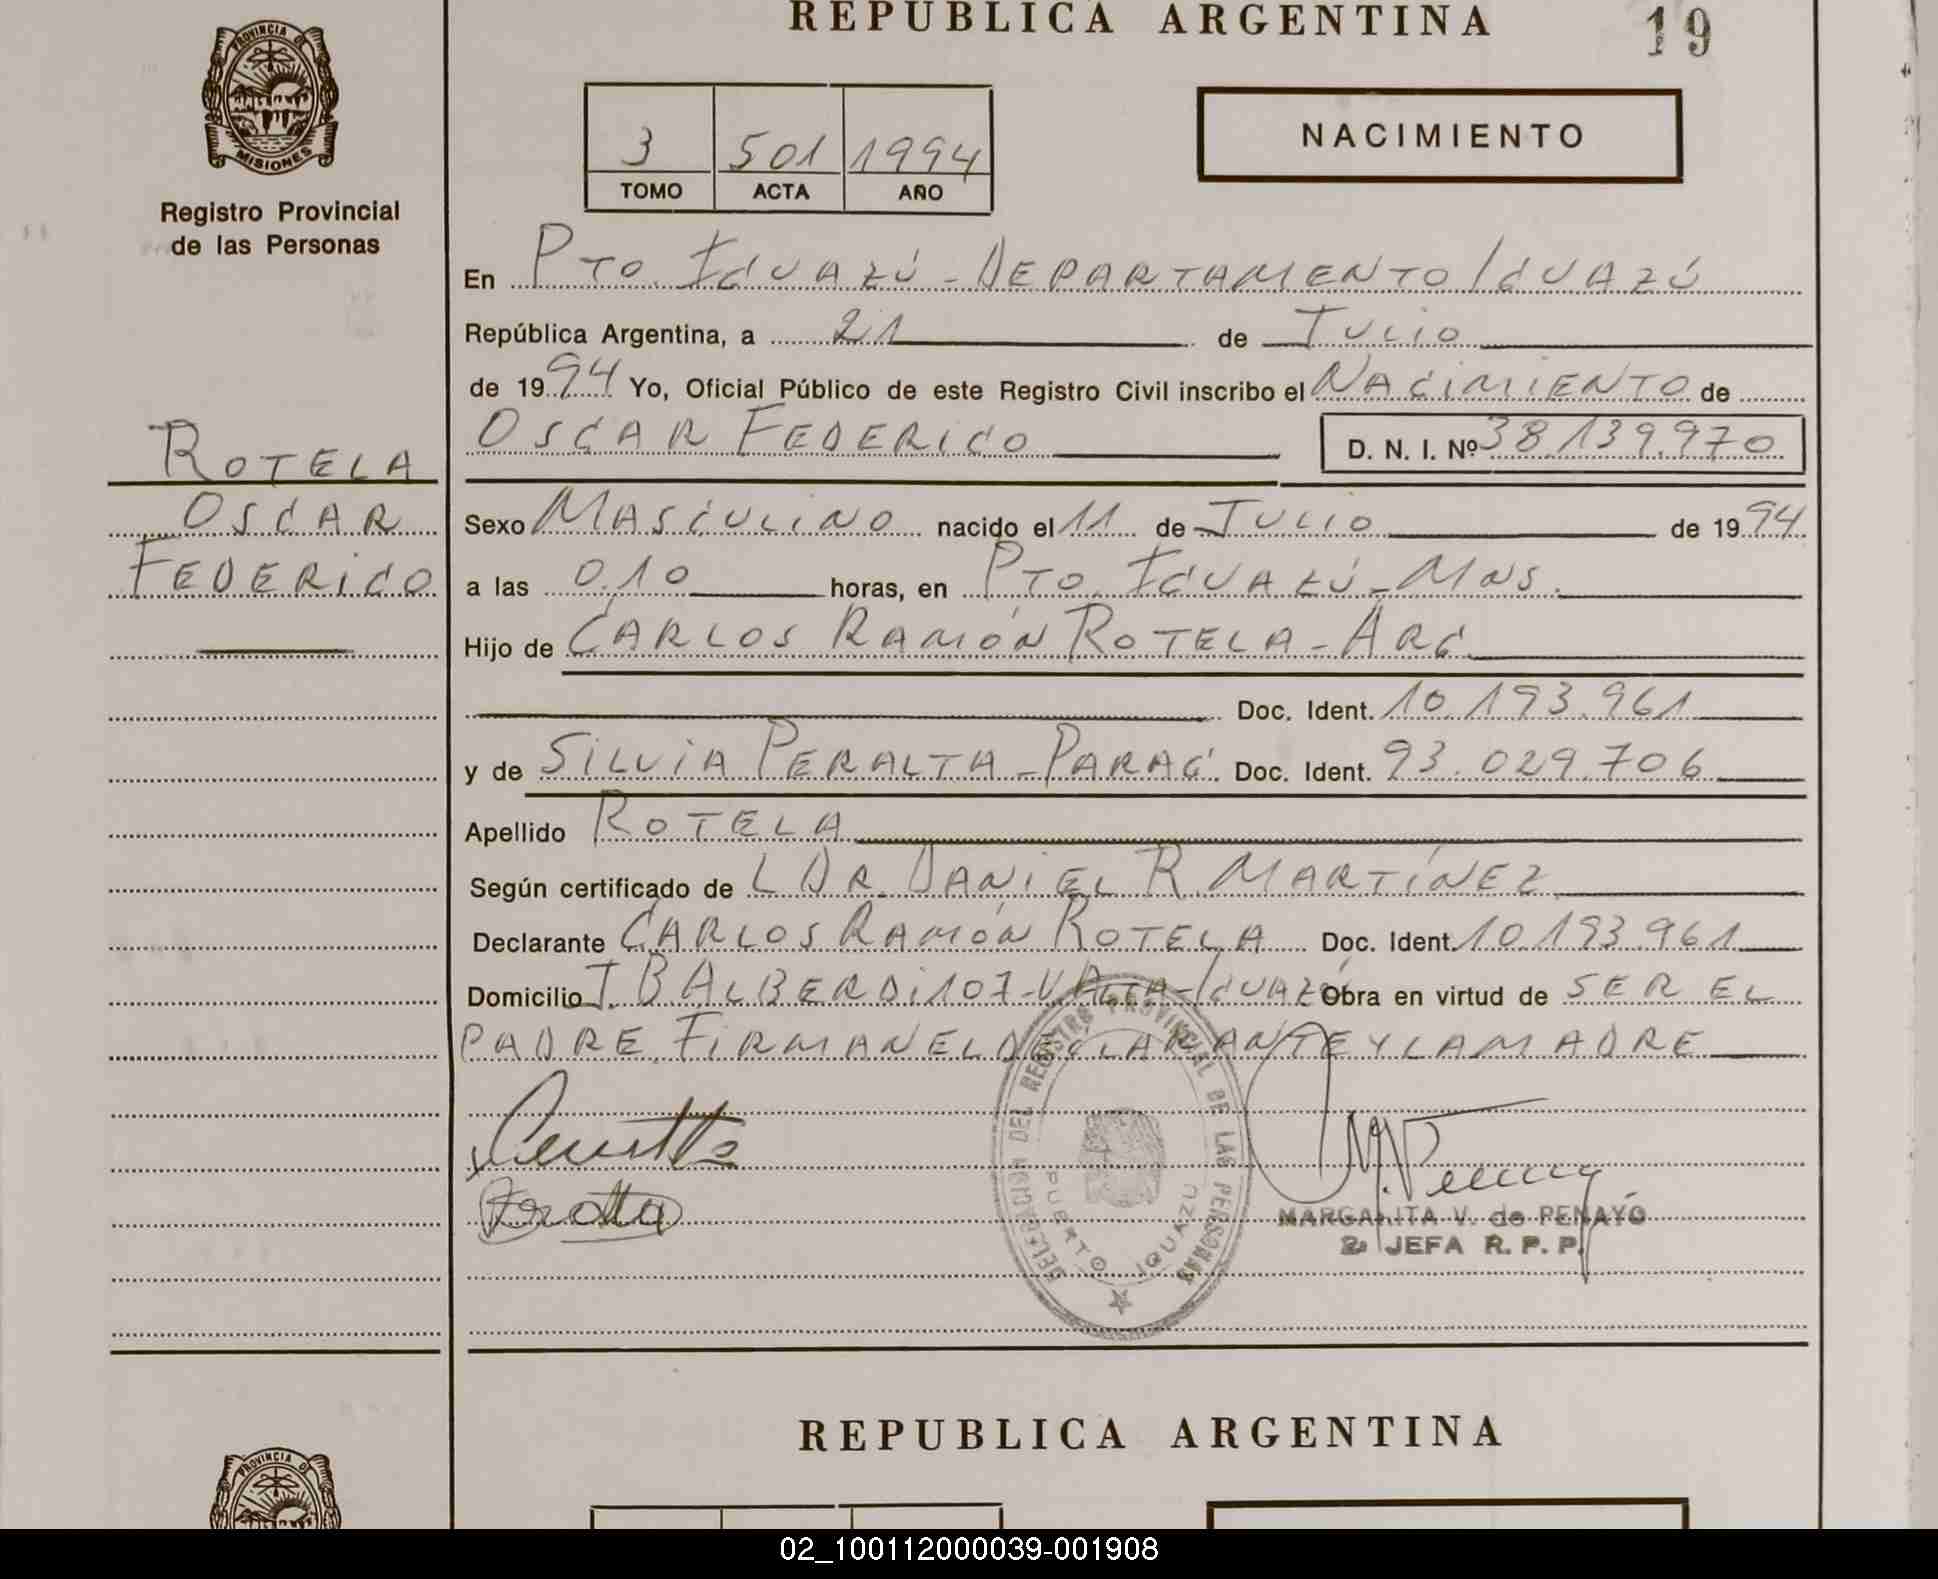 REPUBLICA ARGENTINA
19
PROVINCIA DE
MISIONES
Registro Provincial
de las Personas
3 501 1994
TOMO ACTA AÑO
NACIMIENTO
En PTO. IGUAZÚ - DEPARTAMENTO IGUAZÚ
República Argentina, a 21 de JULIO
de 1994 Yo, Oficial Público de este Registro Civil inscribo el NACIMIENTO de
OSCAR FEDERICO D. N. I. Nº 38.139.970
ROTELA
OSCAR
FEDERICO
Sexo MASCULINO nacido el 11 de JULIO de 1994
a las 0.10 horas, en PTO. IGUAZÚ - MNS.
Hijo de CARLOS RAMÓN ROTELA - ARG.
Doc. Ident. 10.193.961
y de SILVIA PERALTA - PARAG. Doc. Ident. 93.029.706
Apellido ROTELA
Según certificado de L DR. DANIEL R. MARTÍNEZ
Declarante CARLOS RAMÓN ROTELA Doc. Ident. 10.193.961
Domicilio J. B ALBERDI 107 - V. ALTA - IGUAZÚ Obra en virtud de SER EL
PADRE. FIRMAN EL DECLARANTE Y LA MADRE
DELEGACION DEL REGISTRO PROVINCIAL DE LAS PERSONAS
PUERTO IGUAZU
MARGARITA V. de PENAYO
2ª JEFA R. P. P.
REPUBLICA ARGENTINA
PROVINCIA DE
02_100112000039-001908